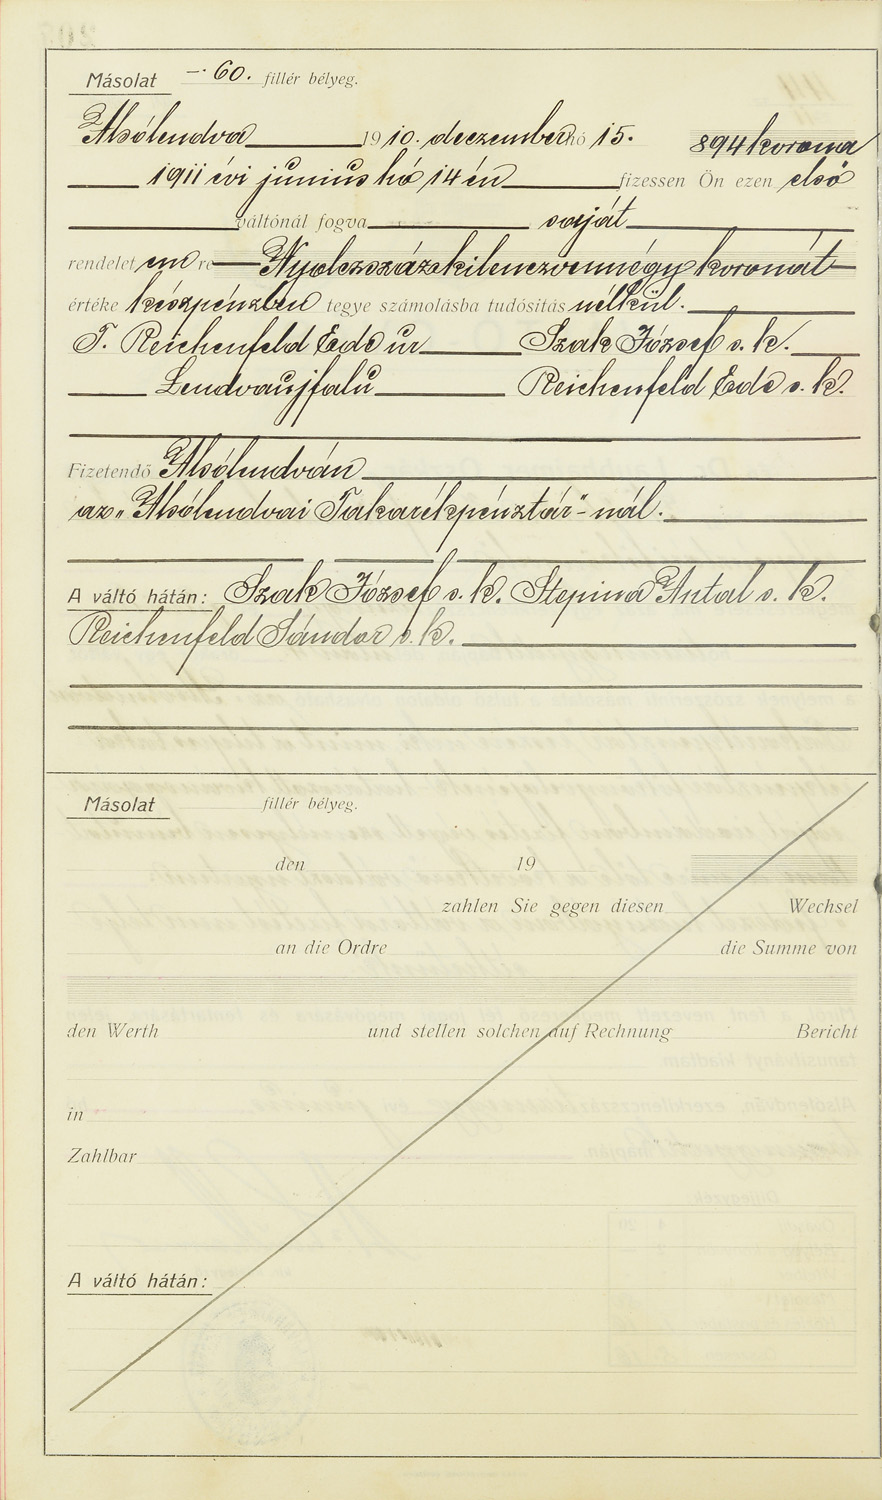 Másolat —·60. fillér bélyeg.
Alsólendva 1910. deczember hó 15. 894 korona
1911 évi junius hó 14 én fizessen Ön ezen első
váltónál fogva saját
rendeletemre Nyolczszázkilenczvennégy koronát
értéke készpénzben tegye számolásba tudósítás nélkül.
T. Reichenfeld Ede ur Szak József s. k.
Lendvaujfalu Reichenfeld Ede s. k.
Fizetendő Alsólendván
az „Alsólendvai Takarékpénztár"-nál.
A váltó hátán: Szak József s. k. Stepina Antal s. k.
Reichenfeld Sándor s. k.
Másolat fillér bélyeg.
den 19
zahlen Sie gegen diesen Wechsel
an die Ordre die Summe von
den Werth und stellen solchen auf Rechnung Bericht
in
Zahlbar
A váltó hátán: